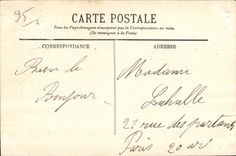 95
CARTE POSTALE
Tous les Pays étrangers n'acceptent pas la Correspondance au recto.
(Se renseigner à la Poste).
CORRESPONDANCE
ADRESSE
Bien le
Bonjour
Madame
Lahalle
21 rue des
Paris 20